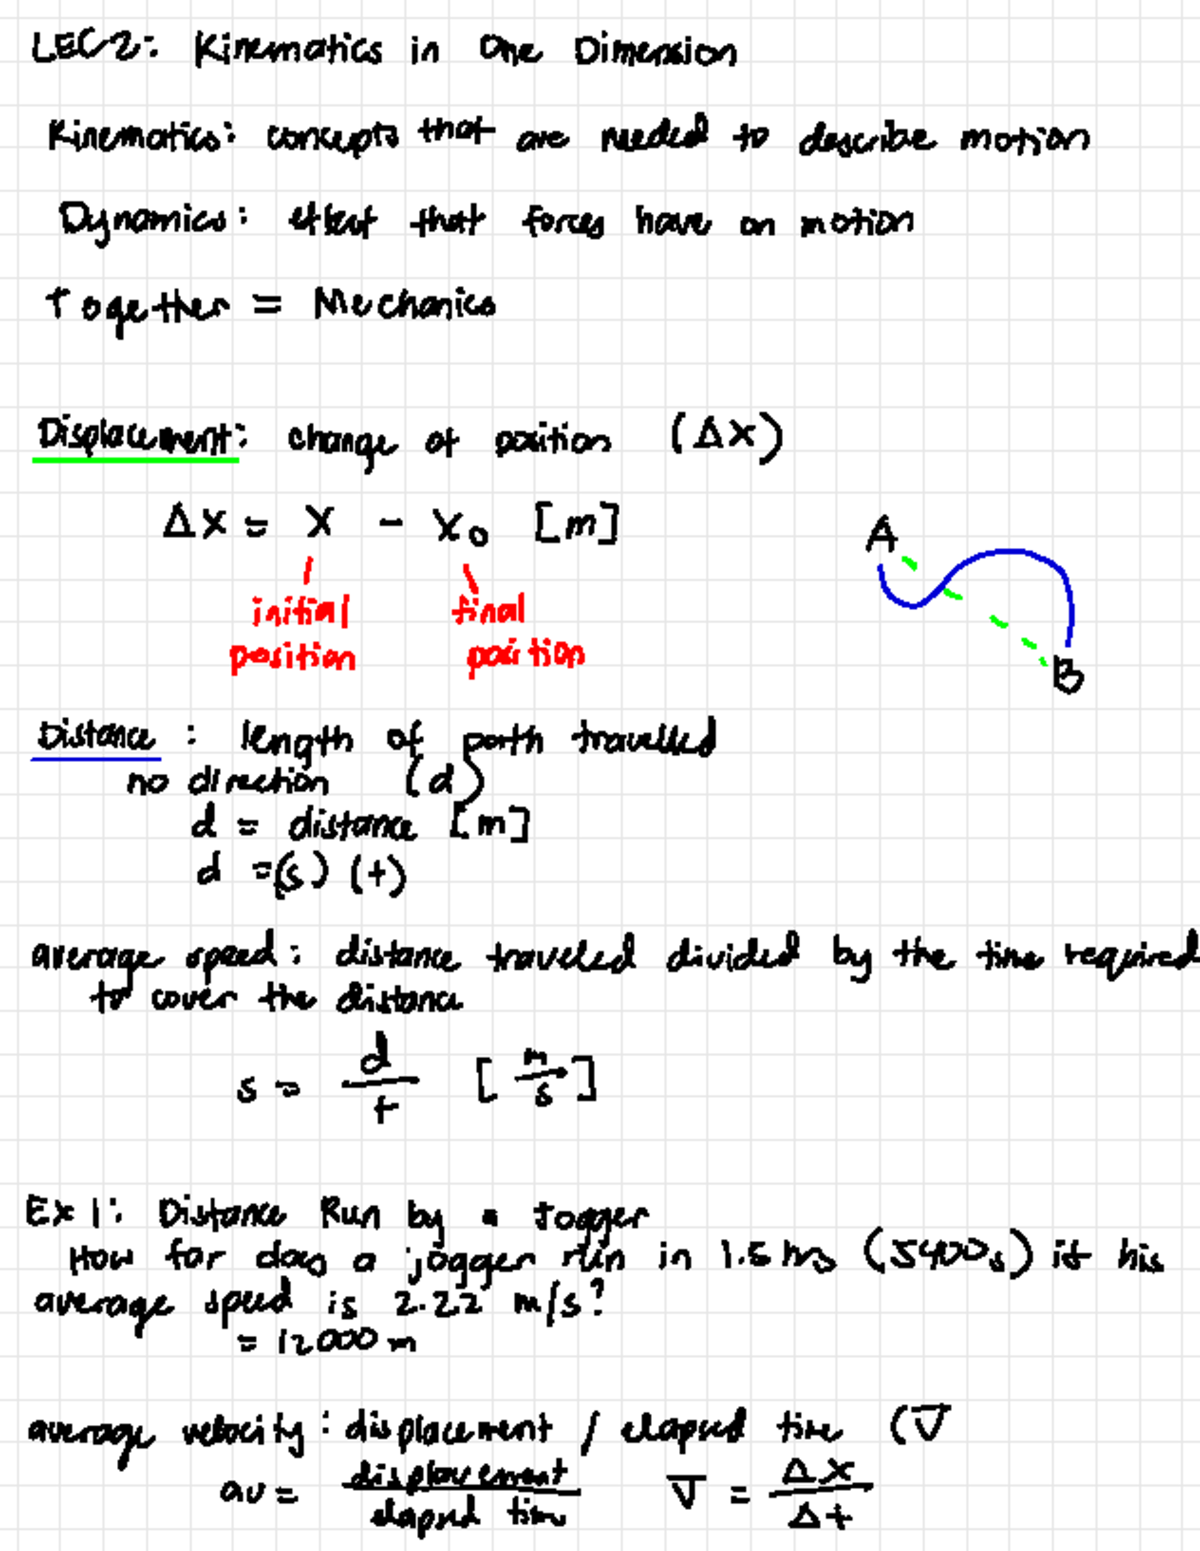 LEC2: Kinematics in One Dimension
Kinematics: concepts that are needed to describe motion
Dynamics: effect that forces have on motion
Together = Mechanics
Displacement: change of position (Δx)
Δx = x - x₀ [m]
initial position
final position
A
B
Distance: length of path travelled
no direction (d)
d = distance [m]
d =(s) (t)
average speed: distance traveled divided by the time required
to cover the distance
s = d/t [m/s]
Ex 1: Distance Run by a Jogger
How far does a jogger run in 1.5 hrs (5400s) if his
average speed is 2.22 m/s?
= 12000 m
average velocity: displacement / elapsed time (v̅
av = displacement/elapsed time v̅ = Δx/Δt